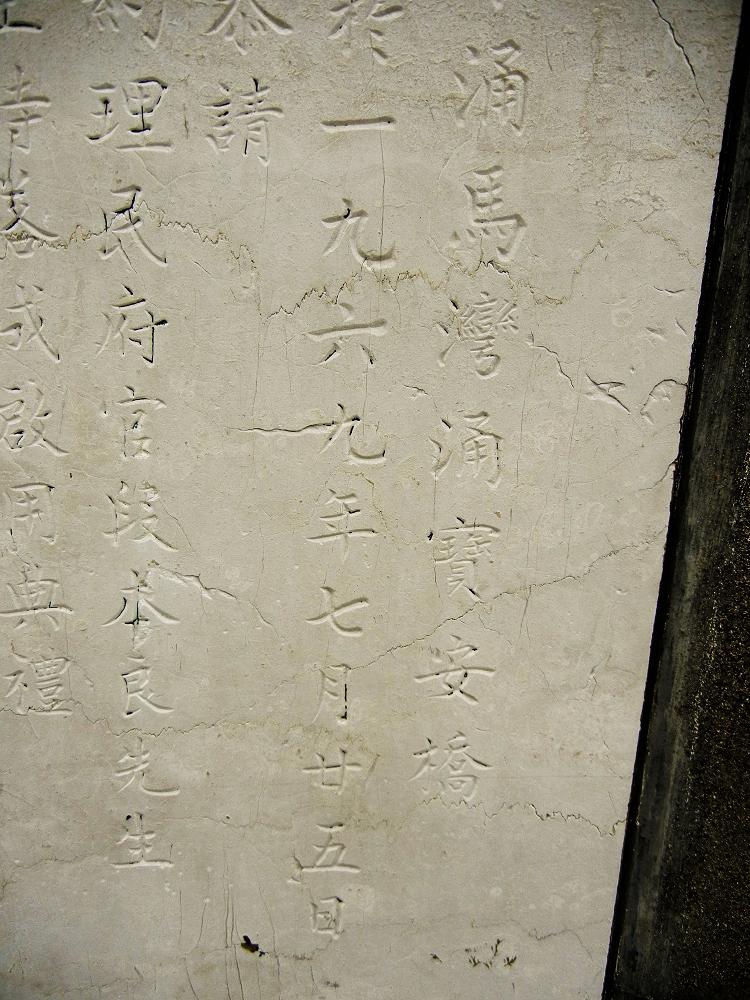 涌馬灣涌寶安橋
於一九六九年七月廿五日
恭請
理民府官段本良先生
寺落成啟用典禮